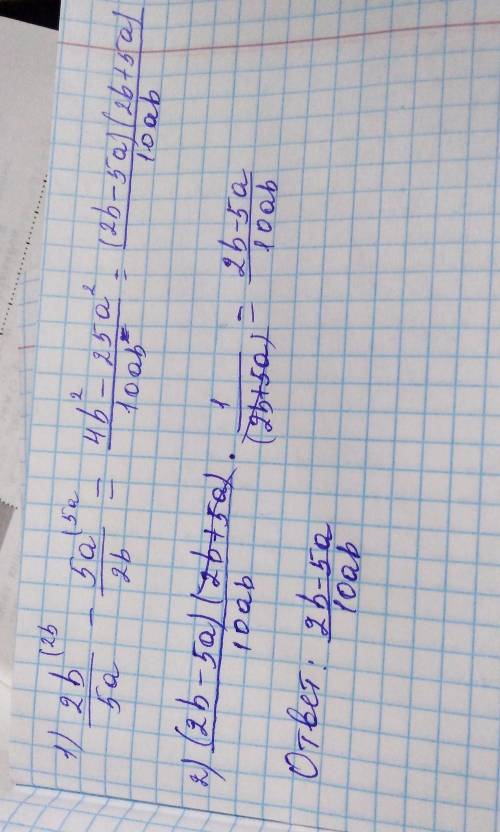 1) 2b^(2b / 5a - 5a^(5a / 2b = 4b² - 25a² / 10ab = (2b-5a)(2b+5a) / 10ab
2) (2b-5a)(2b+5a) / 10ab · 1 / (2b+5a) = 2b-5a / 10ab
Ответ: 2b-5a / 10ab